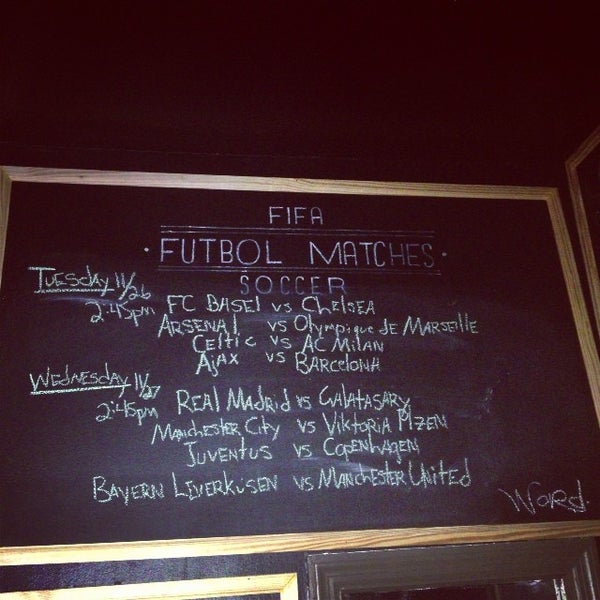 FIFA
FUTBOL MATCHES
SOCCER
TUESDAY 11/26
2:45pm FC BASEL vs CHELSEA
ARSENAL vs Olympique de MARSEILLE
Celtic vs AC MILAN
AJAX vs BARCELONA
WEDNESDAY 11/27
2:45pm REAL MADRID vs GALATASARY
MANCHESTER CITY vs VIKTORIA PLZEN
JUVENTUS vs COPENHAGEN
BAYERN LEVERKUSEN vs MANCHESTER UNITED
WORD.